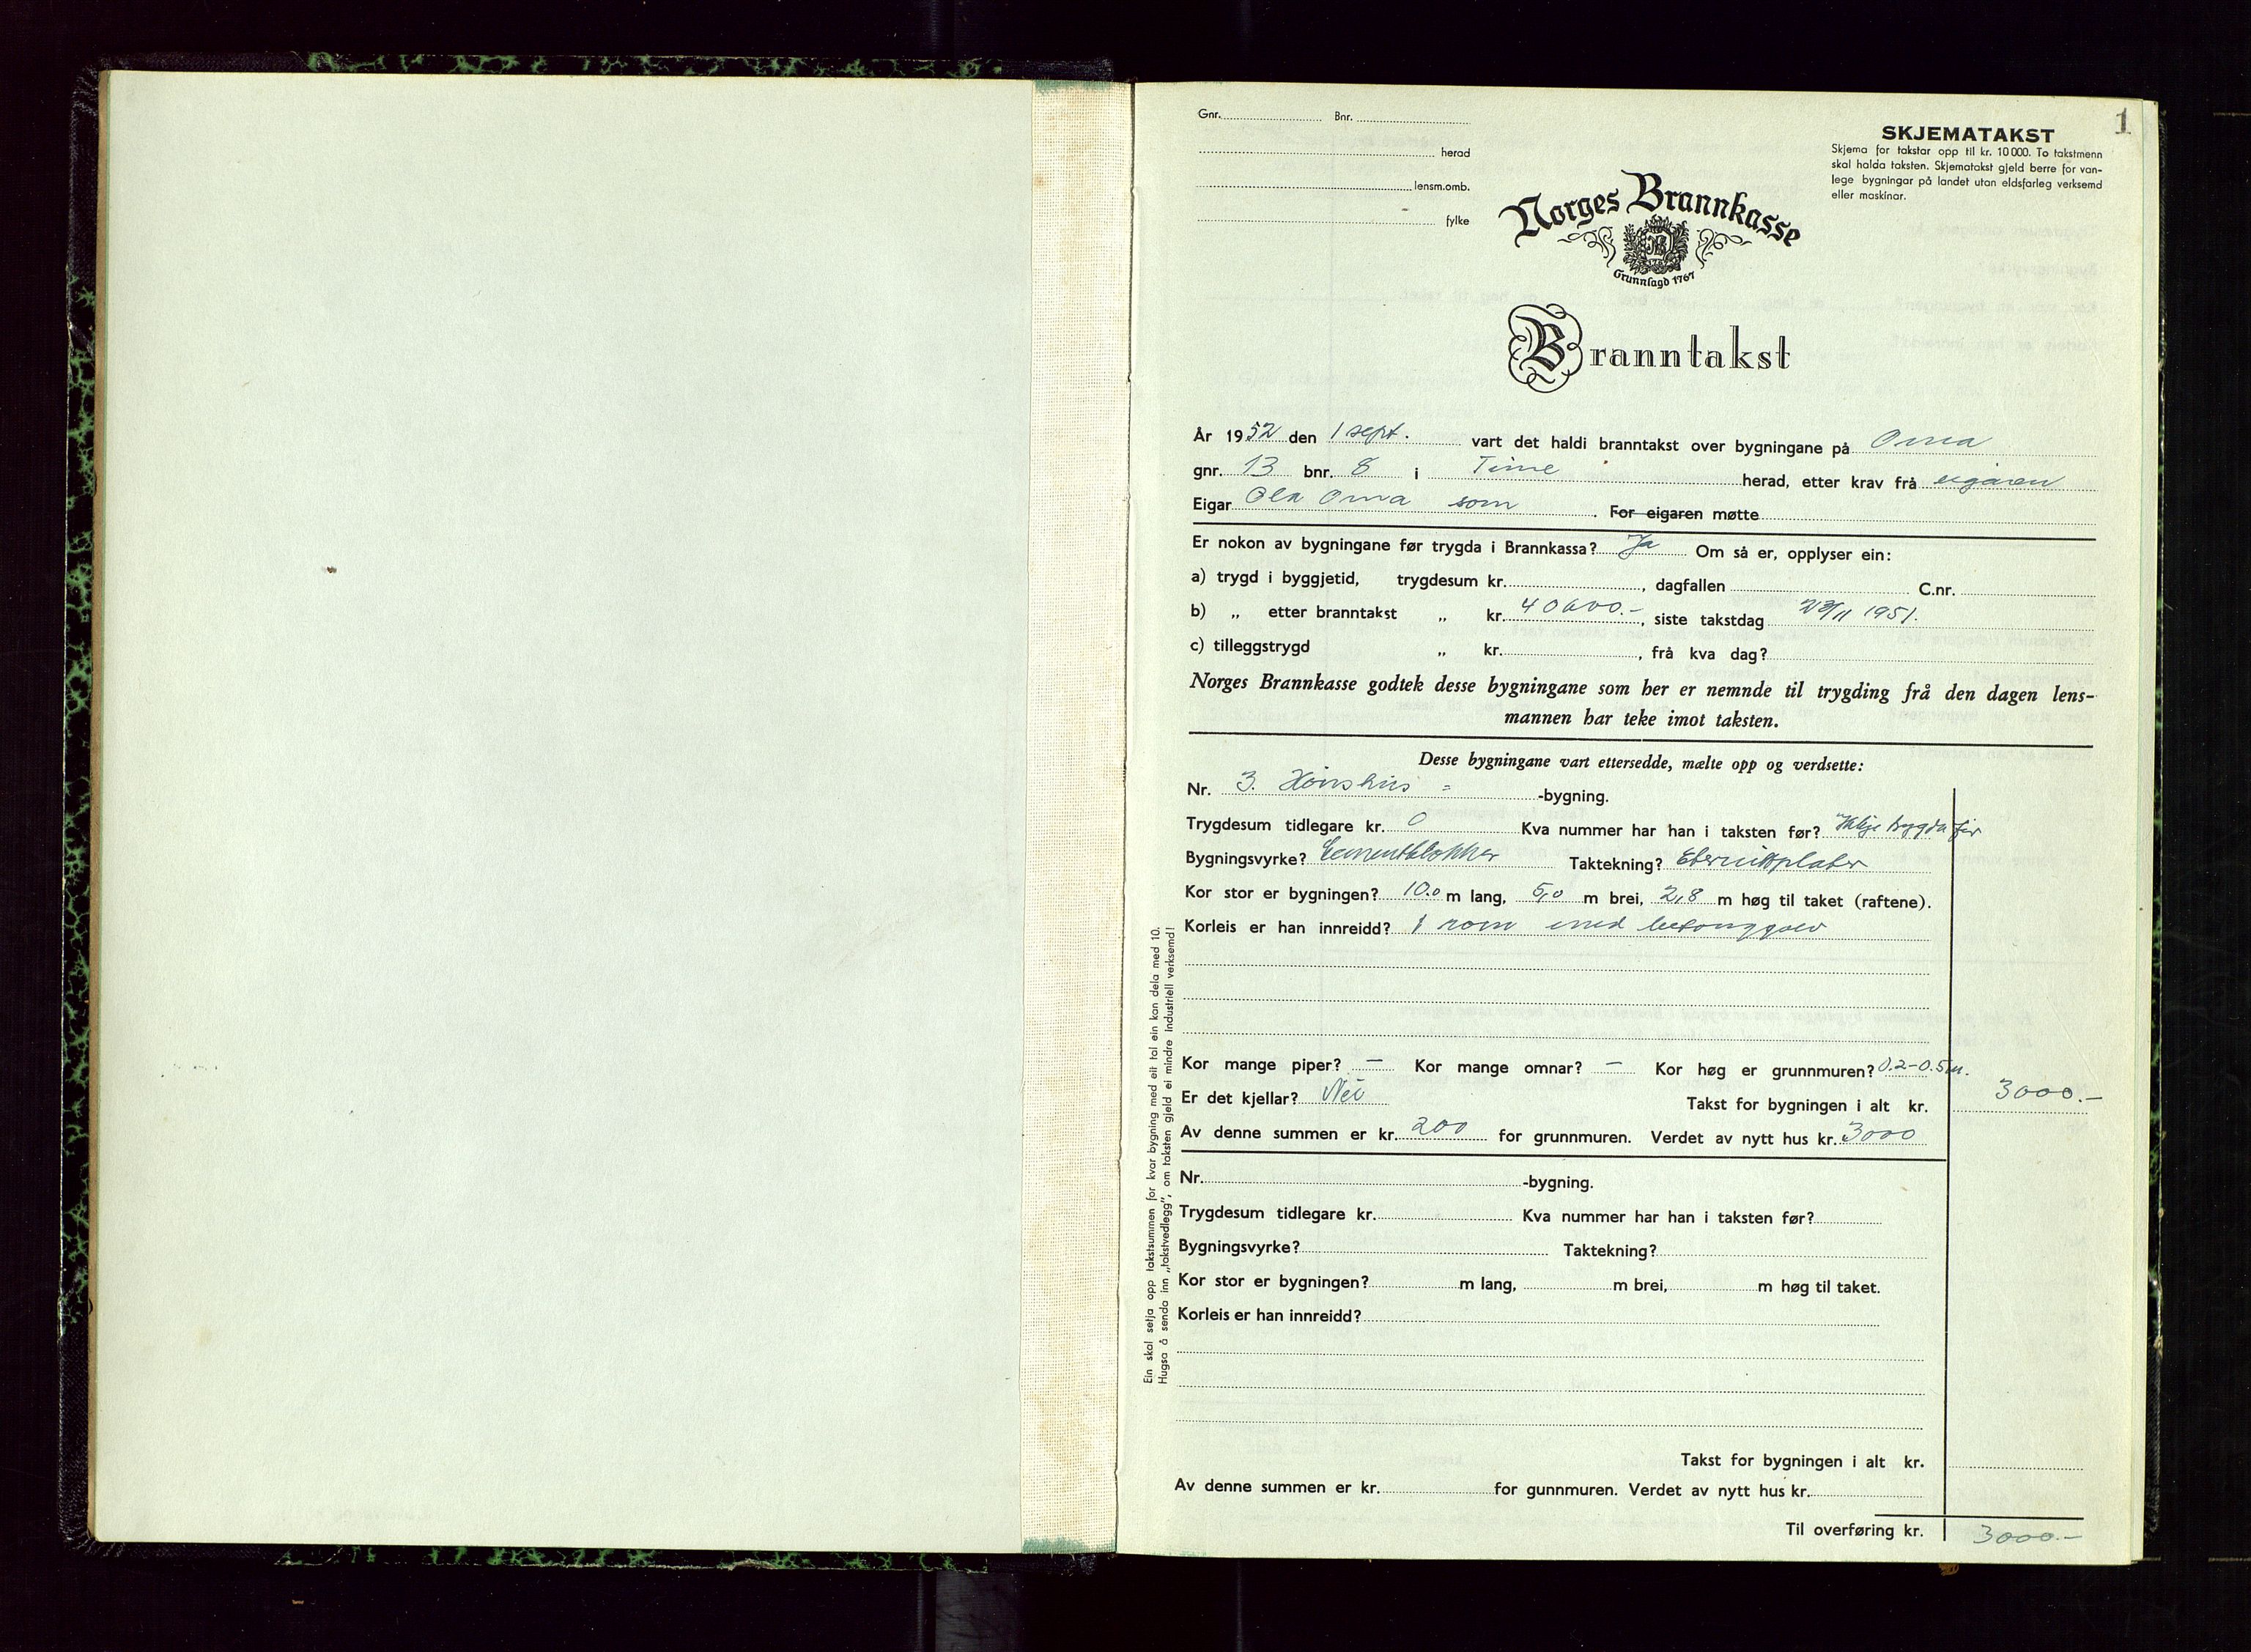 1
Gnr. Bnr.
herad
lensm.omb.
fylke
SKJEMATAKST
Skjema for takstar opp til kr. 10 000. To takstmenn
skal halda taksten. Skjematakst gjeld berre for van-
lege bygningar på landet utan eldsfarleg verksemd
eller maskinar.
Norges Brannkasse
Grunnlagd 1767
Branntakst
År 1952 den 1 sept. vart det haldi branntakst over bygningane på Oma
gnr. 13 bnr. 8 i Time herad, etter krav frå eigaren
Eigar Ola Oma som . For eigaren møtte
Er nokon av bygningane før trygda i Brannkassa? Ja Om så er, opplyser ein:
a) trygd i byggjetid, trygdesum kr. , dagfallen C.nr.
b) „ etter branntakst „ kr. , siste takstdag /11 1951.
c) tilleggstrygd „ kr. , frå kva dag?
Norges Brannkasse godtek desse bygningane som her er nemnde til trygding frå den dagen lens-
mannen har teke imot taksten.
Desse bygningane vart ettersedde, mælte opp og verdsette:
Nr. 3. Hönshus = -bygning.
Trygdesum tidlegare kr. 0 Kva nummer har han i taksten før? Ikkje før
Bygningsvyrke? Cementblokker Taktekning? Eternittplater
Kor stor er bygningen? 10.0 m lang, 5,0 m brei, 2,8 m høg til taket (raftene).
Korleis er han innreidd? 1 rom med betonggolv
Kor mange piper? — Kor mange omnar? — Kor høg er grunnmuren? 0.2-0.5m.
Er det kjellar? Nei Takst for bygningen i alt kr. 3000.-
Av denne summen er kr. 200 for grunnmuren. Verdet av nytt hus kr. 3000
Nr. -bygning.
Trygdesum tidlegare kr. Kva nummer har han i taksten før?
Bygningsvyrke? Taktekning?
Kor stor er bygningen? m lang, m brei, m høg til taket.
Korleis er han innreidd?
Takst for bygningen i alt kr.
Av denne summen er kr. for gunnmuren. Verdet av nytt hus kr.
Til overføring kr. 3000.-
Ein skal setja opp takstsummen for kvar bygning med eit tal ein kan dela med 10.
Hugsa å senda inn „takstvedlegg", om taksten gjeld ei mindre industriell verksemd!